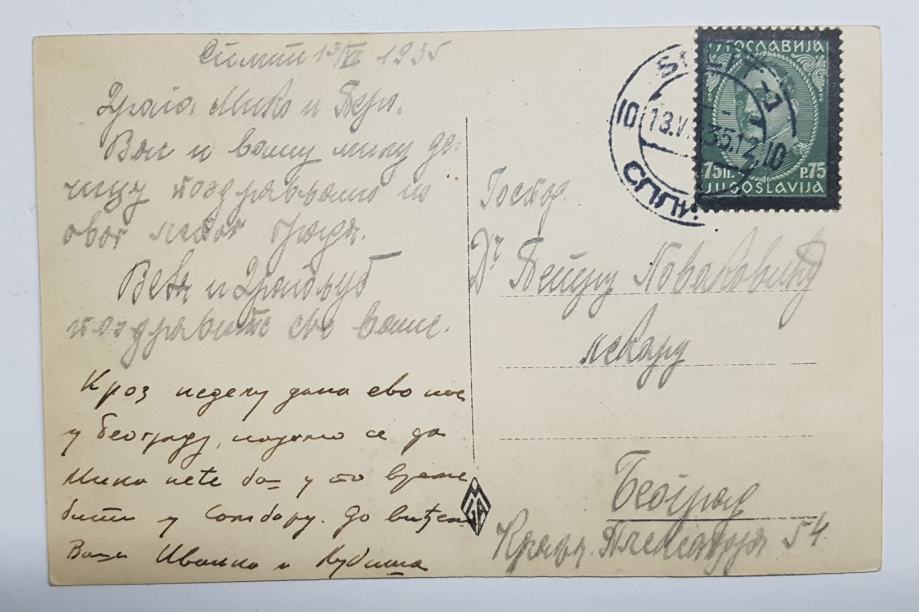 Сплит 13/VI 1935
Драга Мико и Перо.
Вас и вашу милу де-
чицу поздрављамо из
овог лепог града.
и Драгољуб
поздравите све ваше.
Кроз недељу дана ево нас
у Београду, надамо се да
Мика неће баш у то време
бити у Сомбору. До виђења
Ваши Иванка и Љубиша
ЈУГОСЛАВИЈА
75П. P.75
JUGOSLAVIJA
10 13.VI.35.12 10
СПЛИ
Господ.
Dr Петру Новаковићу
лекару
Београд
Краља Александра 54.
MGA